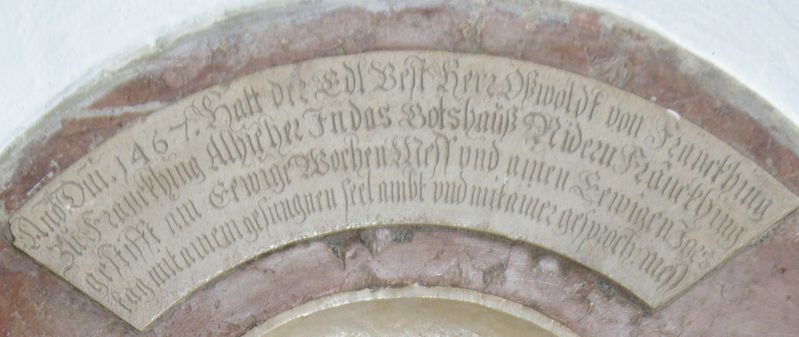 Año Dni. 1467. Hatt der Edl Vest Herr Oßwoldt von Franckhing
zu Franckhing Alhieher In das Gotshauß Nidern Franckhing
gestifft ain Eewige Wochen Mess vnd ainen Eewigen Jar
tag mit ainem gesungnen seel ambt vnd mit ainer gesproch. mess